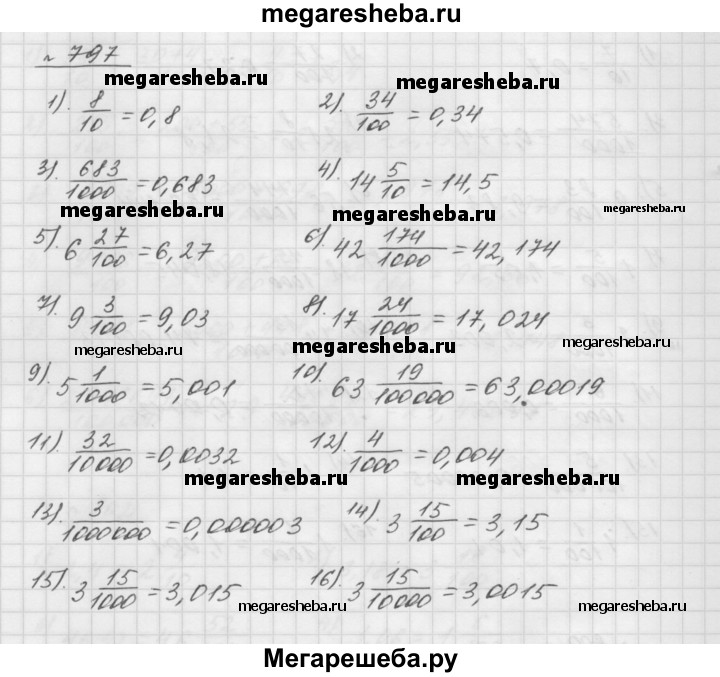 megaresheba.ru
№ 797
megaresheba.ru megaresheba.ru
1). 8/10 = 0,8 2). 34/100 = 0,34
3). 683/1000 = 0,683 4). 14 5/10 = 14,5
megaresheba.ru megaresheba.ru megaresheba.ru
5). 6 27/100 = 6,27 6). 42 174/1000 = 42,174
7). 9 3/100 = 9,03 8). 17 24/1000 = 17,024
megaresheba.ru megaresheba.ru megaresheba.ru
9). 5 1/1000 = 5,001 10). 63 19/100000 = 63,00019
11). 32/10000 = 0,0032 12). 4/1000 = 0,004
megaresheba.ru megaresheba.ru
13). 3/1000000 = 0,000003 14). 3 15/100 = 3,15
15). 3 15/1000 = 3,015 16). 3 15/10000 = 3,0015
megaresheba.ru megaresheba.ru
Мегарешеба.ру